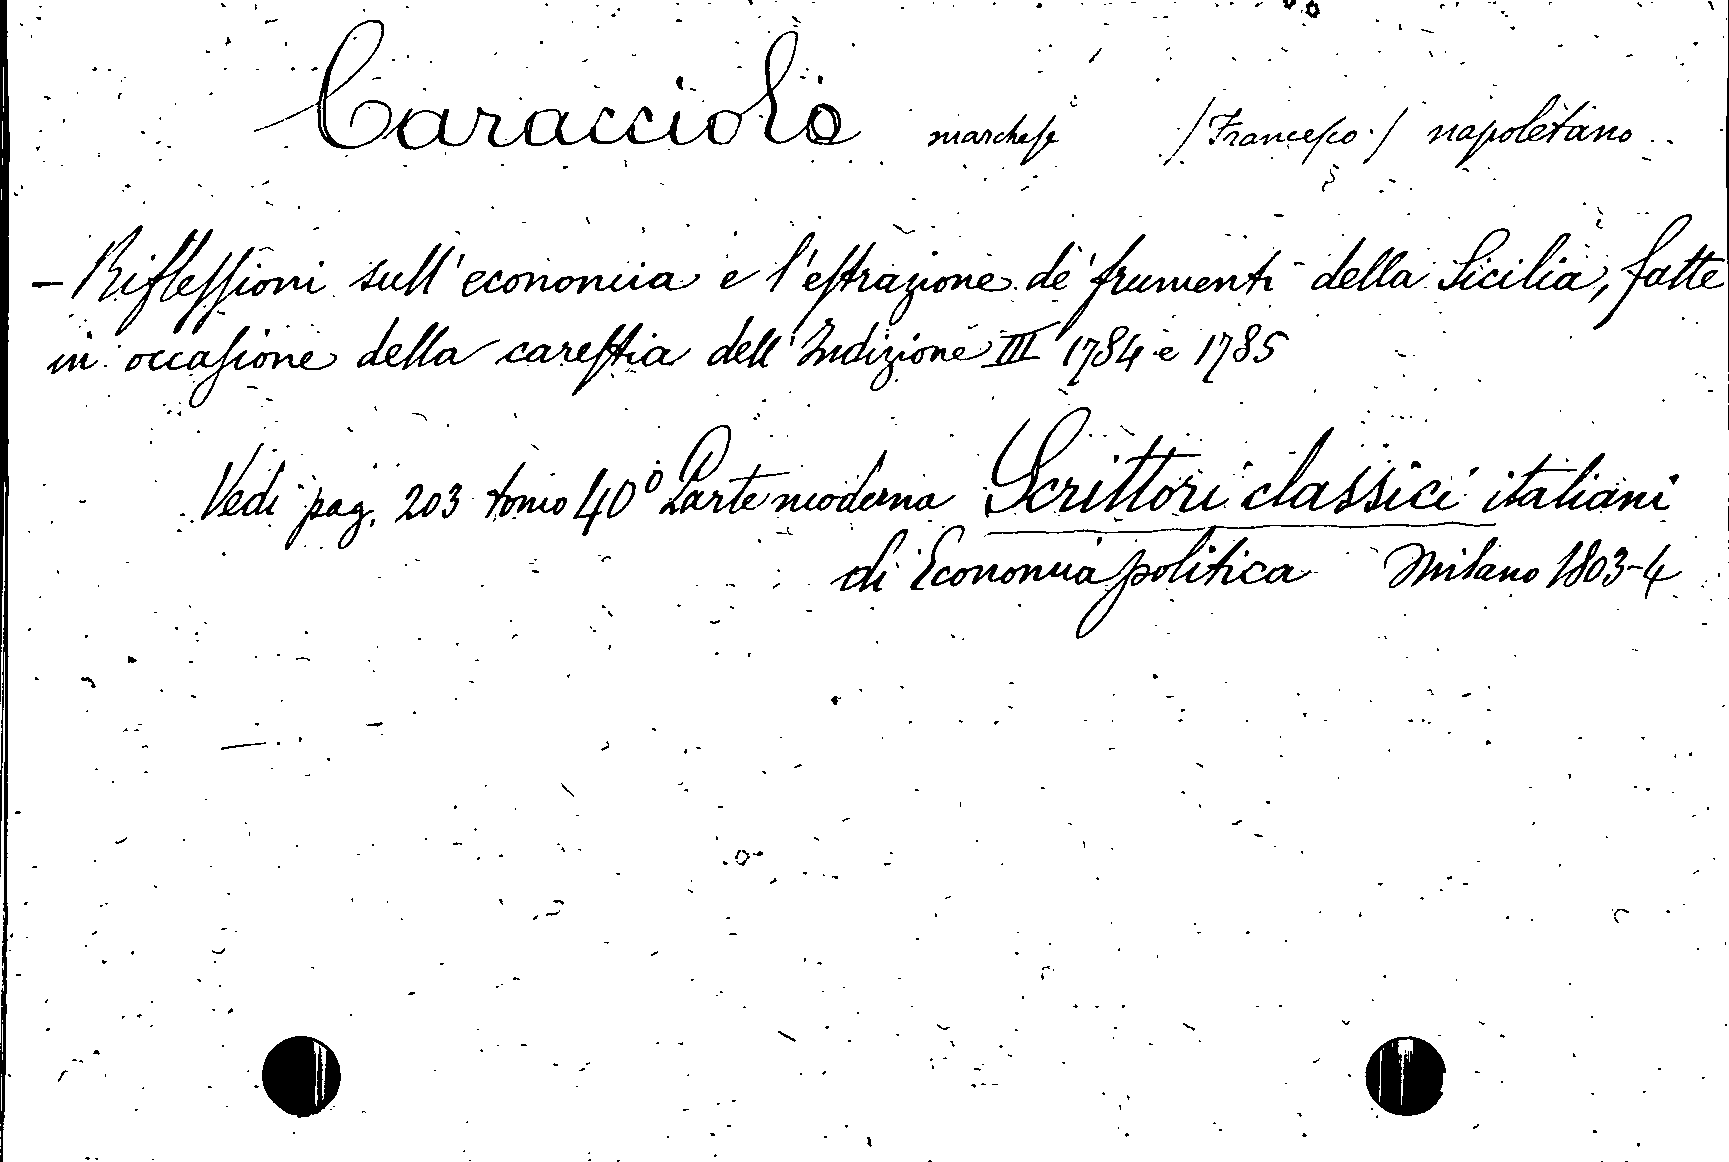 Caracciolo marchese /Francesco./ napoletano
- Riflessioni sull'economia e l'estrazione de' frumenti della Sicilia, fatte
in occasione della carestia dell'Indizione III 1784 e 1785
Vedi pag. 203 tomo 40° Parte moderna Scrittori classici italiani
di Economia politica Milano 1803-4